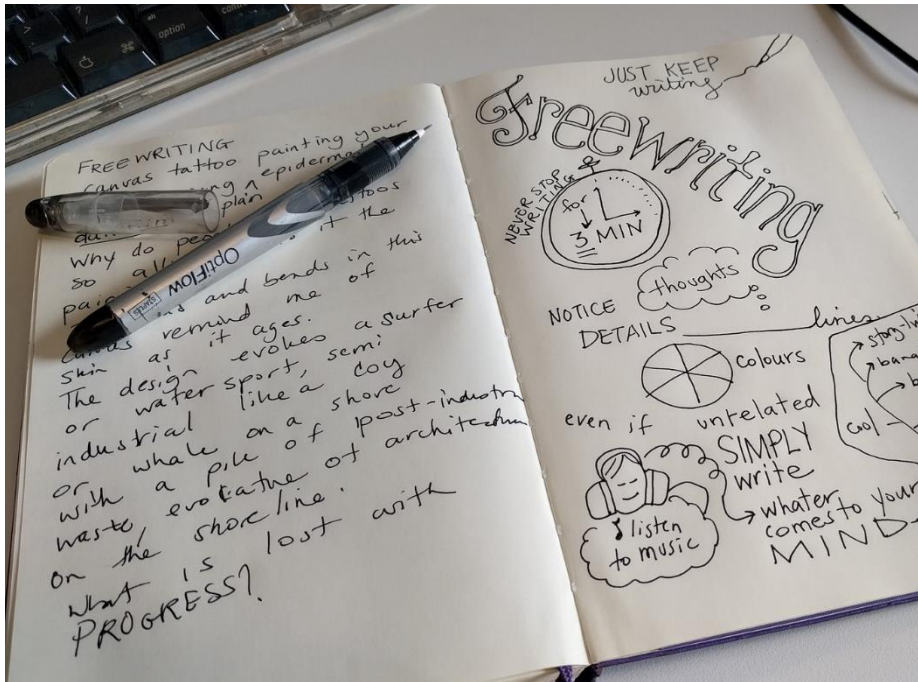 alt
option
option
⌘
FREEWRITING
canvas tattoo painting your
epiderm
plan
toos
Why do peo
so all it the
pai
ing and bends in this
canvas remind me of
skin as it ages.
The design evokes a surfer
or water sport, semi
industrial like a coy
or whale on a shore
with a pile of post-industri
waste, evocative of architectur
on the shoreline.
What is lost with
PROGRESS?
OptiFlow
JUST KEEP
writing
Freewriting
NEVER STOP
WRITING
for
3 MIN
thoughts
NOTICE
DETAILS
lines
colours
even if untelated
SIMPLY
write
whater
comes to your
MIND
listen
to music
story-li
bane
b
Cool